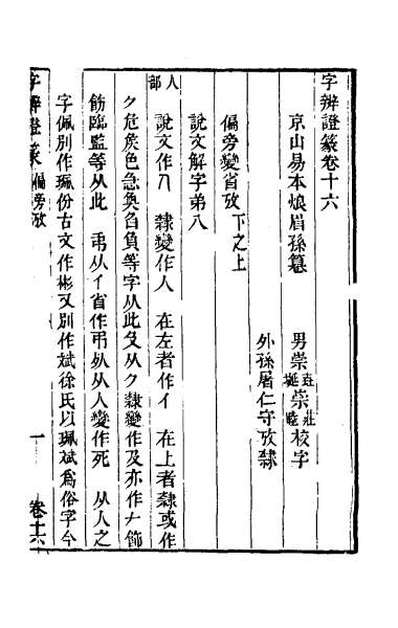 字辨證篆卷十六
京山易本烺眉孫纂　男崇垚崇莊
崇梴崇塍校字
外孫屠仁守攷隸
偏旁變省攷下之上
說文解字弟八
人部　說文作　隸變作人　在左者作亻　在上者隸或作
𠂊危矦色急奐臽負等字从此　从𠂊隸變作及亦作𠂉飾
飭臨監等从此　弔从亻省作弔　从人變作死　从人之
字佩別作珮份古文作彬又別作斌徐氏以珮斌為俗字今
字辨證篆　偏旁攷　一　卷十六